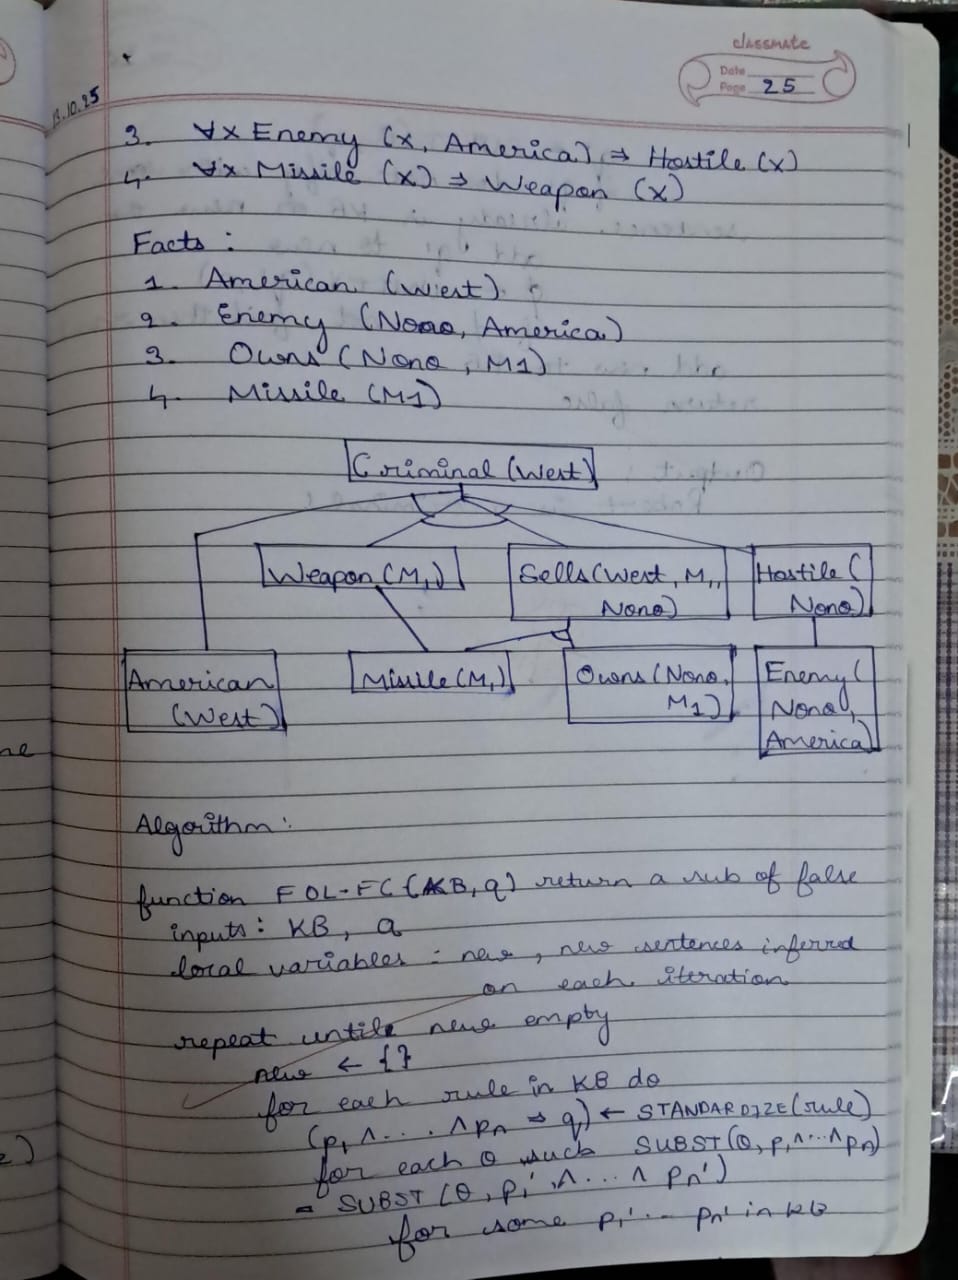 classmate
Date
Page 25
13.10.25
3. ∀x Enemy (x, America) ⇒ Hostile (x)
4. ∀x Missile (x) ⇒ Weapon (x)
Facts :
1. American (West)
2. Enemy (Nono, America)
3. Owns (Nono, M1)
4. Missile (M1)
Criminal (West)
Weapon (M1)
Sells (West, M1,
Nono)
Hostile (
Nono)
American
(West)
Missile (M1)
Owns (Nono,
M1)
Enemy (
Nono,
America)
Algorithm :
function FOL-FC (KB, q) return a sub of false
inputs : KB, q
local variables : new, new sentences inferred
on each iteration
repeat untile new empty
new ← { }
for each rule in KB do
(p1 ∧ ... ∧ pn ⇒ q) ← STANDARDIZE (rule)
for each θ such SUBST (θ, p1 ∧ ... ∧ pn)
= SUBST (θ, p1' ∧ ... ∧ pn')
for some p1' ... pn' in KB